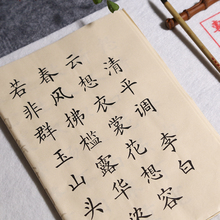 清平调李白
云想衣裳花想容
春风拂槛露华
若非群玉山头